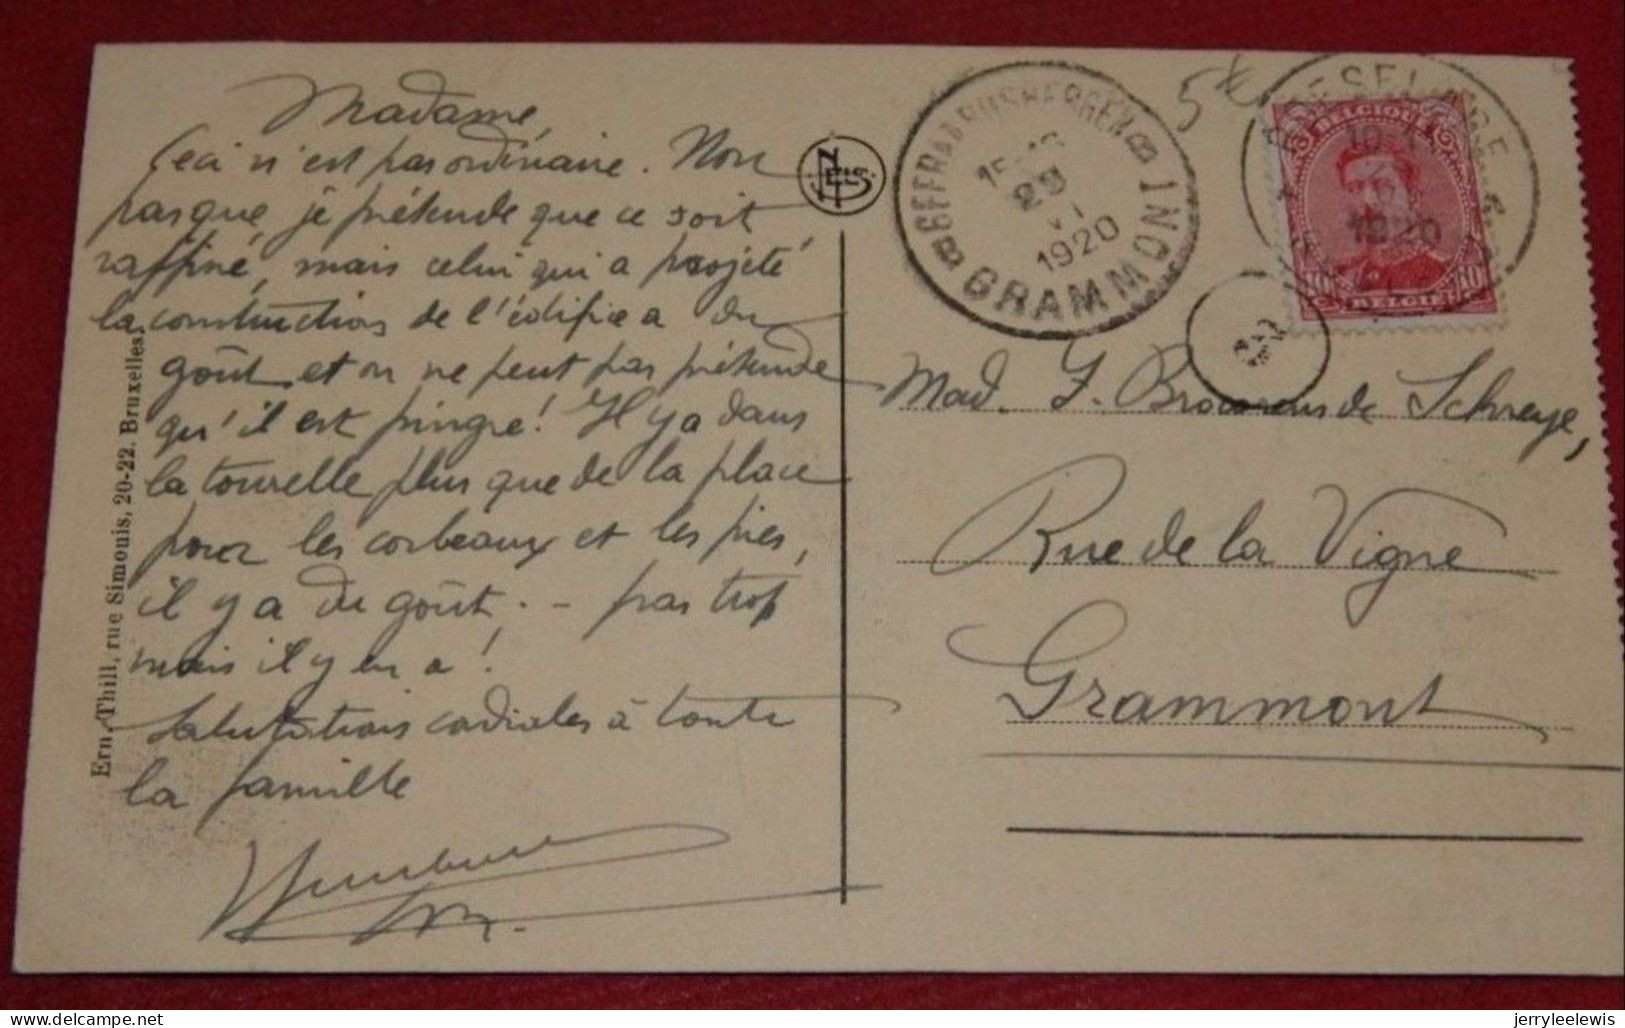 Madame,
Ceci n'est pas ordinaire. Non
pas que je prétende que ce soit
raffiné, mais celui qui a projeté
la construction de l'édifice a du
goût et on ne peut pas prétendre
qu'il est pingre! Il y a dans
la tourelle plus que de la place
pour les corbeaux et les pies,
il y a du goût. - pas trop
mais il y en a!
Salutations cordiales à toute
la famille
Ern. Thill, rue Simonis, 20-22. Bruxelles.
NELS
GEERAARDSBERGEN
15-16
29
VI
1920
GRAMMONT
5k
BELGIQUE
1920
10 BELGIË 10
Mad. J. de Schreye,
Rue de la Vigne
Grammont
jerryleelewis